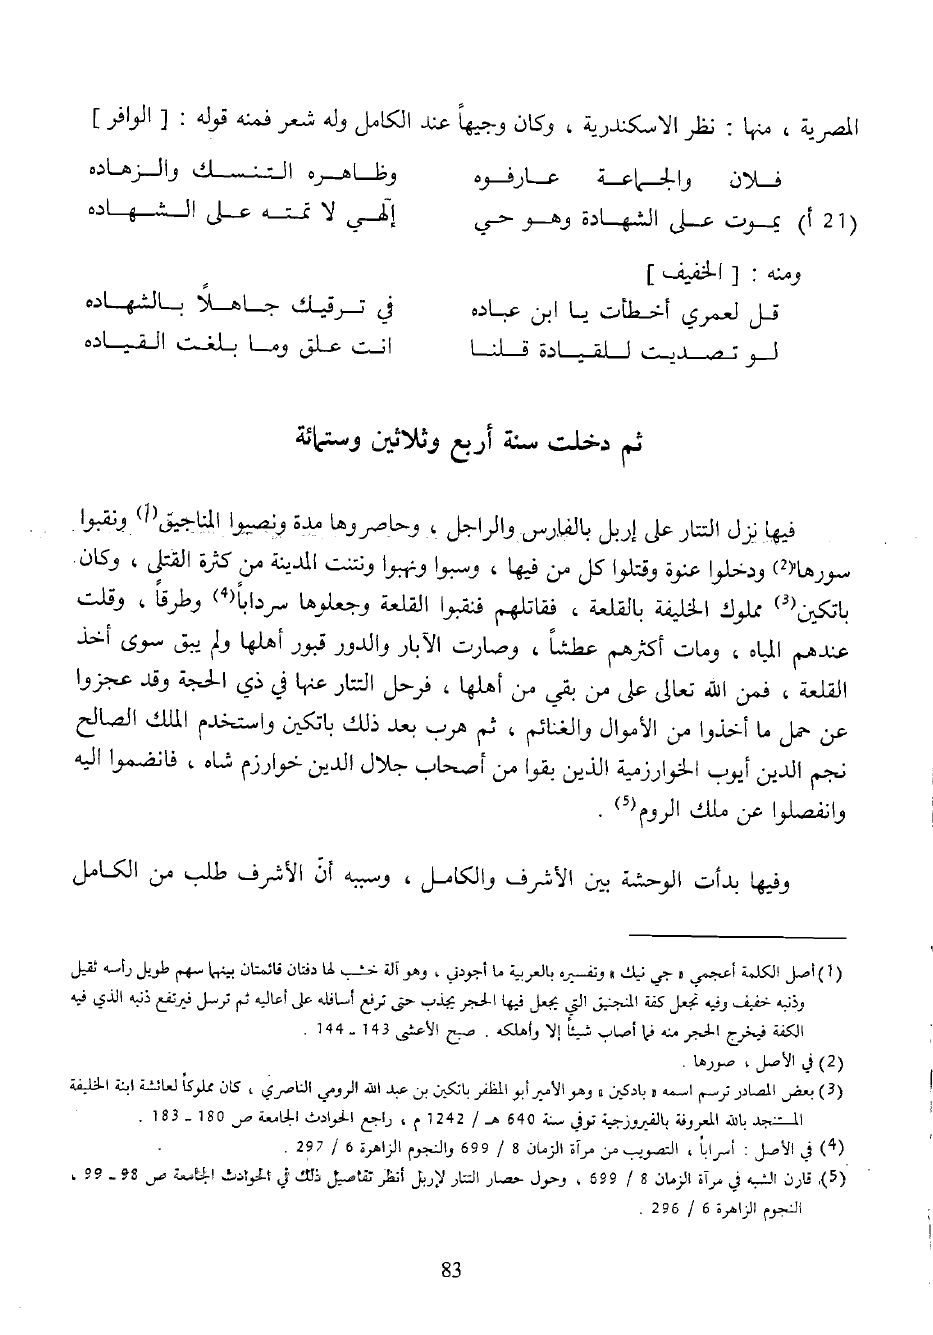 المصرية ، منها : نظر الاسكندرية ، وكان وجيهاً عند الكامل وله شعر فمنه قوله : [ الوافر ]
فلان والجماعة عارفوه وظاهره التنسك والزهاده
(21 أ) يموت على الشهادة وهو حي إلٰهي لا تمته على الشهاده
ومنه : [ الخفيف ]
قل لعمري أخطأت يا ابن عباده في ترقيك جاهلاً بالشهاده
لو تصديت للقيادة قلنا انت علق وما بلغت القياده
ثم دخلت سنة أربع وثلاثين وستمائة
فيها نزل التتار على إربل بالفارس والراجل ، وحاصروها مدة ونصبوا المناجيق(1) ونقبوا
سورها(2) ودخلوا عنوة وقتلوا كل من فيها ، وسبوا ونهبوا ونتنت المدينة من كثرة القتلى ، وكان
باتكين(3) مملوك الخليفة بالقلعة ، فقاتلهم فنقبوا القلعة وجعلوها سرداباً(4) وطرقاً ، وقلت
عندهم المياه ، ومات أكثرهم عطشاً ، وصارت الآبار والدور قبور أهلها ولم يبق سوى أخذ
القلعة ، فمن الله تعالى على من بقي من أهلها ، فرحل التتار عنها في ذي الحجة وقد عجزوا
عن حمل ما أخذوا من الأموال والغنائم ، ثم هرب بعد ذلك باتكين واستخدم الملك الصالح
نجم الدين أيوب الخوارزمية الذين بقوا من أصحاب جلال الدين خوارزم شاه ، فانضموا اليه
وانفصلوا عن ملك الروم(5) .
وفيها بدأت الوحشة بين الأشرف والكامل ، وسببه أنّ الأشرف طلب من الكامل
(1) أصل الكلمة أعجمي « جي نيك » وتفسيره بالعربية ما أجودني ، وهو آلة خشب لها دفتان قائمتان بينهما سهم طويل رأسه ثقيل
وذنبه خفيف وفيه تجعل كفة المنجنيق التي يجعل فيها الحجر يجذب حتى ترفع أسافله على أعاليه ثم ترسل فيرتفع ذنبه الذي فيه
الكفة فيخرج الحجر منه فما أصاب شيئاً إلا وأهلكه . صبح الأعشى 143 ـ 144 .
(2) في الأصل ، صورها .
(3) بعض المصادر ترسم اسمه « بادكين » وهو الأمير أبو المظفر باتكين بن عبد الله الرومي الناصري ، كان مملوكاً لعائشة ابنة الخليفة
المستنجد بالله المعروفة بالفيروزجية توفي سنة 640 هـ / 1242 م ، راجع الحوادث الجامعة ص 180 ـ 183 .
(4) في الأصل : أسراباً ، التصويب من مرآة الزمان 8 / 699 والنجوم الزاهرة 6 / 297 .
(5) قارن الشبه في مرآة الزمان 8 / 699 ، وحول حصار التتار لإربل أنظر تفاصيل ذلك في الحوادث الجامعة ص 98 ـ 99 ،
النجوم الزاهرة 6 / 296 .
83